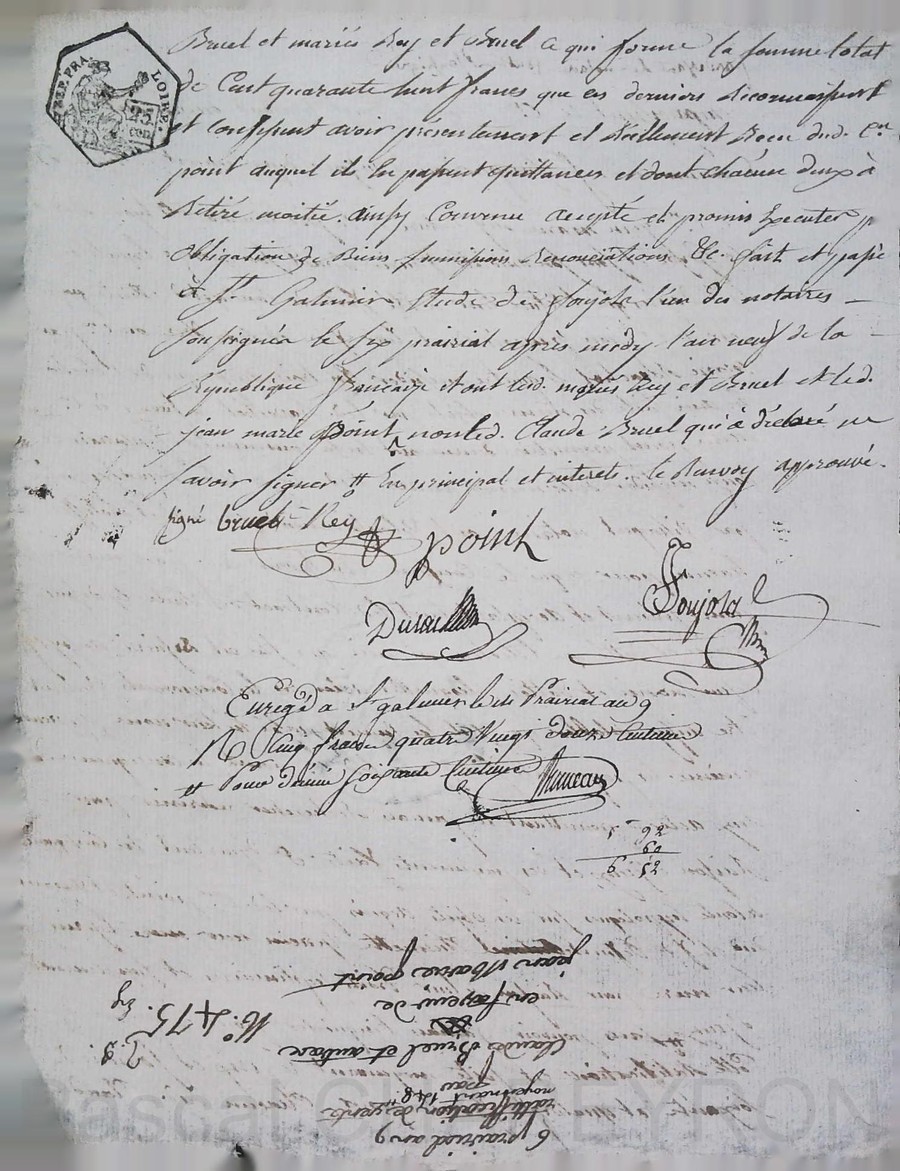 RÉP. FRA.
LOIRE.
25
cen
Bruel et mariés Rey et Bruel ce qui forme la somme totale
de Cent quarante huit francs que ces derniers Reconnaissent
et confessent avoir présentement et Réellement Receu dud. Cen
point auquel ils En passent quittances et dont chacun deux à
Retiré moitié. ainsy Convenu accepté et promis Executer p
obligation de Biens soumissions Renonciations &c. fait et passé
à St. Galmier Etude de Soujola l'un des notaires
soussignés le six prairial après midy l'an neuf de la
République française et ont led. mariés Rey et Bruel et led.
jean marie point, non led. Claude Bruel qui a déclaré ne
savoir signer # En principal et interets. le Renvoy approuvé.
signé bruel Rey point
Soujola
Enregé a St galmier le six Prairial an 9
R Cinq francs quatre Vingt douze Centimes
# Pour dixime soixante Centimes
5 92
60
6 52
6 prairial an 9
rattiffication de vente
moyennant 148 #
par
Claude Bruel et autre
en faveur de
jean Marie point
No. 475.